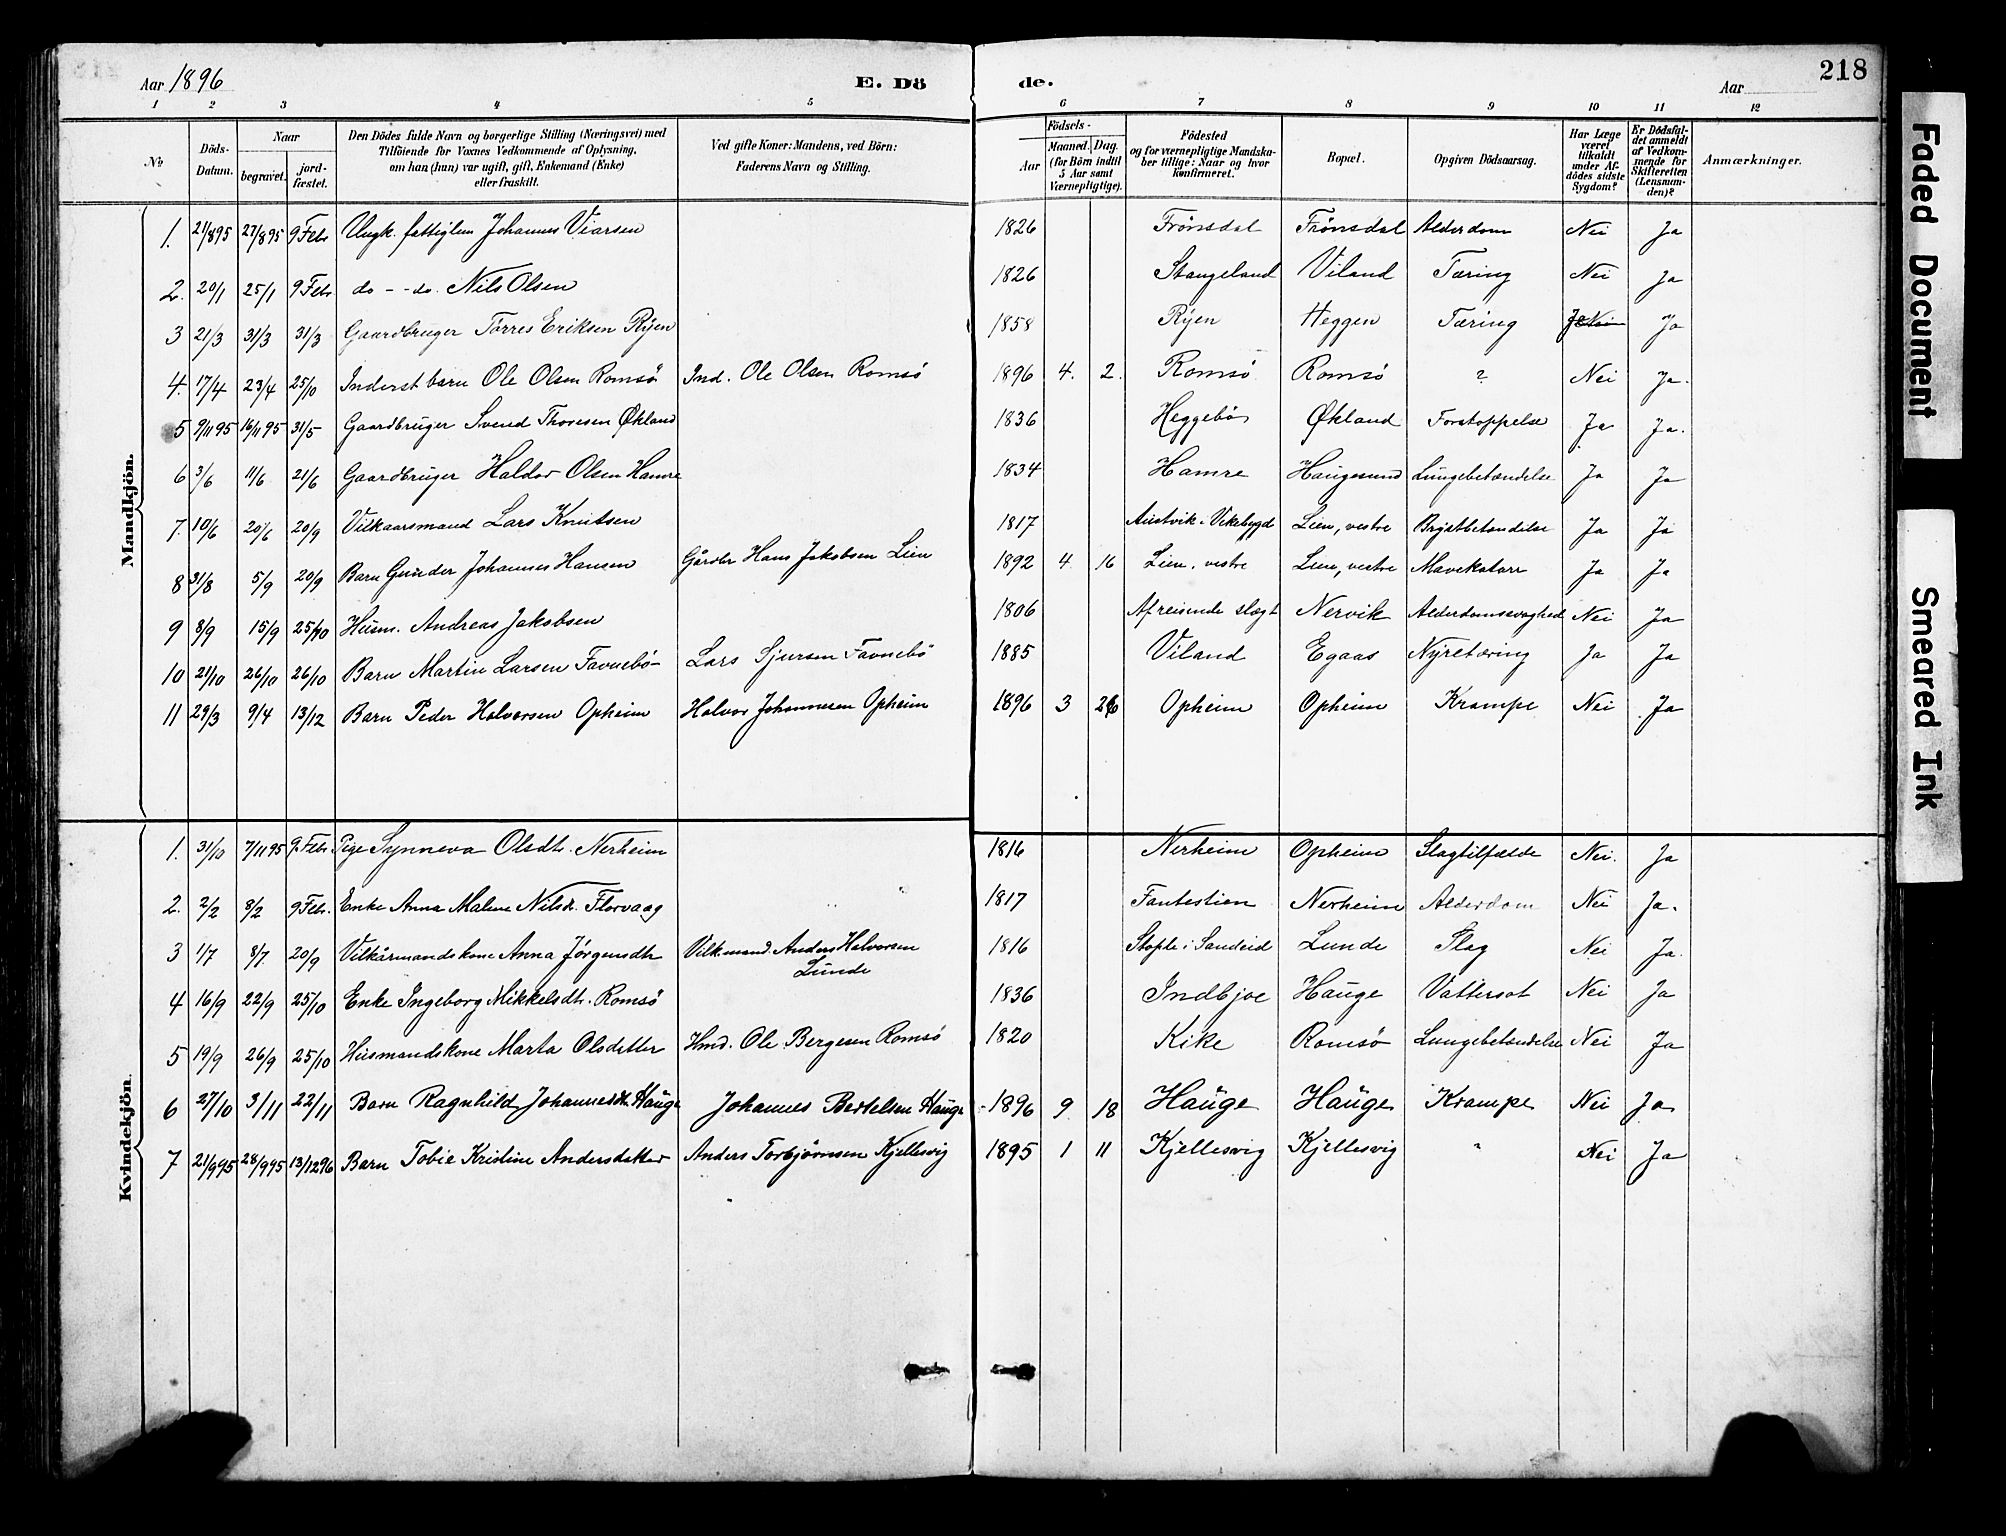 218
Aar 1896 E. Dö de. Aar
1 2 3 4 5 6 7 8 9 10 11 12
No
Döds-Datum.
Naar
begravet.
jord-fæstet.
Den Dödes fulde Navn og borgerlige Stilling (Næringsvei) med
Tilföiende for Voxnes Vedkommende af Oplysning,
om han (hun) var ugift, gift, Enkemand (Enke)
eller fraskilt.
Ved gifte Koner: Mandens, ved Börn:
Faderens Navn og Stilling.
Födsels-
Aar
Maaned. Dag.
(for Börn indtil
5 Aar samt
Værnepligtige).
Födested
og for værnepligtige Mandska-
ber tillige: Naar og hvor
konfirmeret.
Bopæl.
Opgiven Dödsaarsag.
Har Læge
været
tilkaldt
under Af-
dödes sidste
Sygdom?
Er Dödsfal-
det anmeldt
af Vedkom-
mende for
Skifteretten
(Lensman-
den)?
Anmærkninger.
Mandkjön.
1. 21/8 95 27/8 95 9 Febr Ungk. fattiglem Johannes Viarsen 1826 Frönsdal Frönsdal Alderdom Nei Ja
2. 20/1 25/1 9 Febr do - - do. Nils Olsen 1826 Stangeland Viland Tæring Nei Ja
3 21/3 31/3 31/3 Gaardbruger Törres Eriksen Ryen 1858 Ryen Heggen Tæring Ja Nei Ja
4. 17/4 23/4 25/10 Inderst barn Ole Olsen Romsö Ind. Ole Olsen Romsö 1896 4. 2. Romsö Romsö ? Nei Ja.
5 9/11 95 16/11 95 31/5 Gaardbruger Svend Thoresen Økland 1836 Heggebö Økland Forstoppelse Ja Ja.
6 3/6 11/6 21/6 Gaardbruger Haldor Olsen Hamre 1834 Hamre Haugesund Lungebetændelse Ja Ja
7. 10/6 20/6 20/9 Vilkaarsmand Lars Knutsen 1817 Austvik i Vikebygd Lien, vestre Brystbetændelse Ja Ja
8 31/8 5/9 20/9 Barn Gunder Johannes Hansen Gårdbr Hans Jakobsen Lien 1892 4 16 Lien, vestre Lien, vestre Mavekatarr Ja Ja
9 8/9 15/9 25/10 Husm. Andreas Jakobsen 1806 Af reisende slægt Nervik Alderdomssvaghed Nei Ja
10 21/10 26/10 26/10 Barn Martin Larsen Favnebö Lars Sjursen Favnebö 1885 Viland Egaas Nyretæring Ja Ja
11 29/3 9/4 13/12 Barn Peder Halvorsen Opheim Halvor Johannesen Opheim 1896 3 26 Opheim Opheim Krampe Nei Ja
Kvindekjön.
1. 31/10 7/11 95 9. Febr Pige Synneva Olsdtr. Nerheim 1816 Nerheim Opheim Slagtilfælde Nei. Ja
2. 2/2 8/2 9 Febr. Enke Anna Malene Nilsd. Florvaag 1817 Fantestien Nerheim Alderdom Nei Ja.
3 1/7 8/7 20/9 Vilkårmandskone Anna Jörgensdtr Vilk.mand. Anders Halvorsen 1816 Stople i Sandeid Lunde Slag Nei Ja.
Lunde
4 16/9 22/9 25/10 Enke Ingeborg Mikkelsdtr. Romsö 1836 Indbjoe Hauge Vattersot Nei Ja
5 19/9 26/9 25/10 Husmandskone Marta Olsdatter Hmd. Ole Bergesen Romsö 1820 Kike Romsö Lungebetændelse Nei Ja
6 27/10 3/11 22/11 Barn Ragnhild Johannesdtr Hauge Johannes Bertelsen Hauge 1896 9. 18 Hauge Hauge Krampe Nei Ja
7 21/9 95 28/9 95 13/12 96 Barn Tobie Kristine Andersdatter Anders Torbjörnsen Kjellesvig 1895 1 11 Kjellesvig Kjellesvig " Nei Ja
Faded Document
Smeared Ink